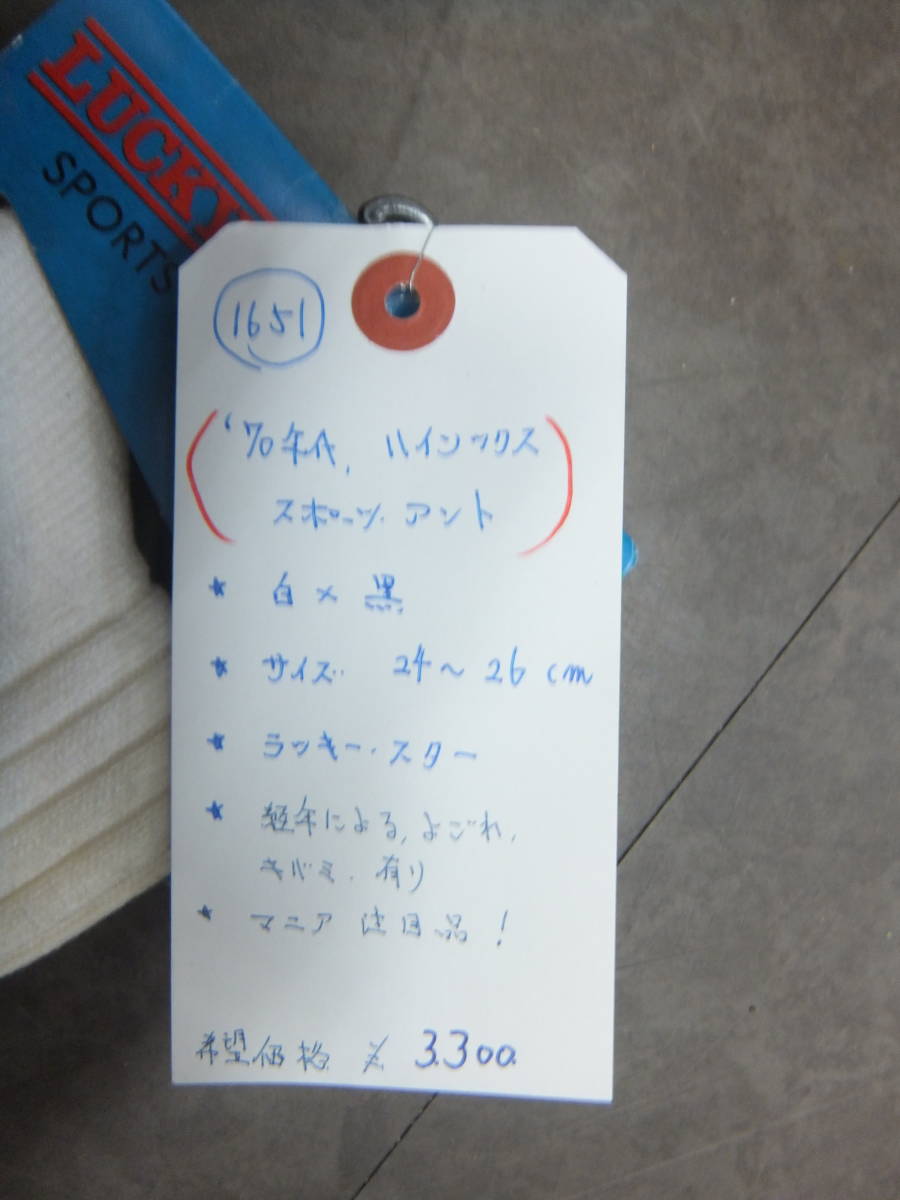 LUCKY
SPORTS
1651
'70年代、ハイソックス
スポーツ、アント
★ 白×黒
★ サイズ 24〜26cm
★ ラッキー・スター
★ 経年による、よごれ、
キバミ、有り
★ マニア注目品!
希望価格 ¥3.300